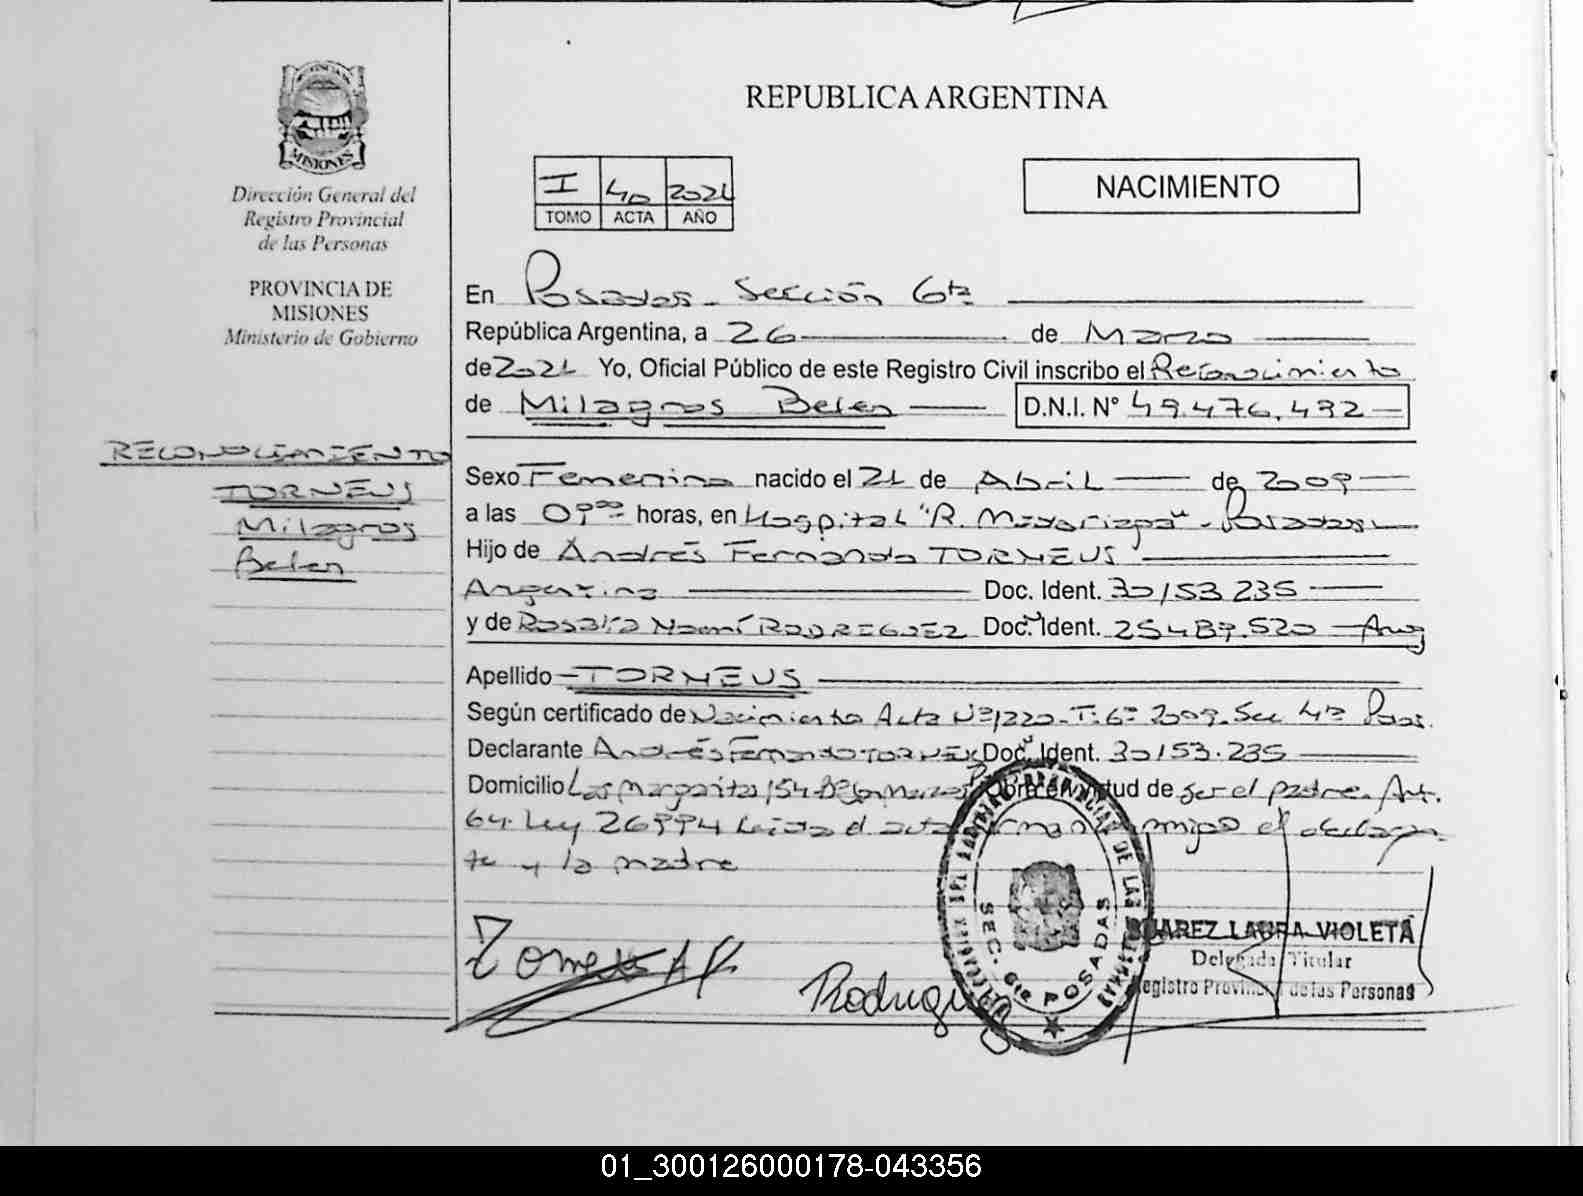 REPUBLICA ARGENTINA
MISIONES
Dirección General del
Registro Provincial
de las Personas
PROVINCIA DE
MISIONES
Ministerio de Gobierno
I 40 2021
TOMO ACTA AÑO
NACIMIENTO
En Posadas - Sección 6ta
República Argentina, a 26 de Marzo
de 2021 Yo, Oficial Público de este Registro Civil inscribo el Reconocimiento
de Milagros Belen D.N.I. N° 49.476.492
RECONOCIMIENTO
TORNEUS
Milagros
Belen
Sexo Femenino nacido el 21 de Abril de 2009
a las 09 horas, en Hospital "R. Madariaga" - Posadas
Hijo de Andrés Fernando TORNEUS
Argentino Doc. Ident. 30153235
y de Noemí RODRIGUEZ Doc. Ident. 25489.520 Arg
Apellido TORNEUS
Según certificado de Nacimiento Acta Nº1220-T:6º 2009. Sec 4ta Pdas.
Declarante Andrés Fernando TORNEUS Doc. Ident. 30153.235
Domicilio Las Margaritas 154 Obra en virtud de ser el padre. Art.
64. Ley 26994 Leida el acta firman conmigo el declaran
te y la madre
Rodriguez
SEC. 6ta POSADAS
SUAREZ LAURA VIOLETA
Delegada Titular
Registro Provincial de las Personas
01_300126000178-043356